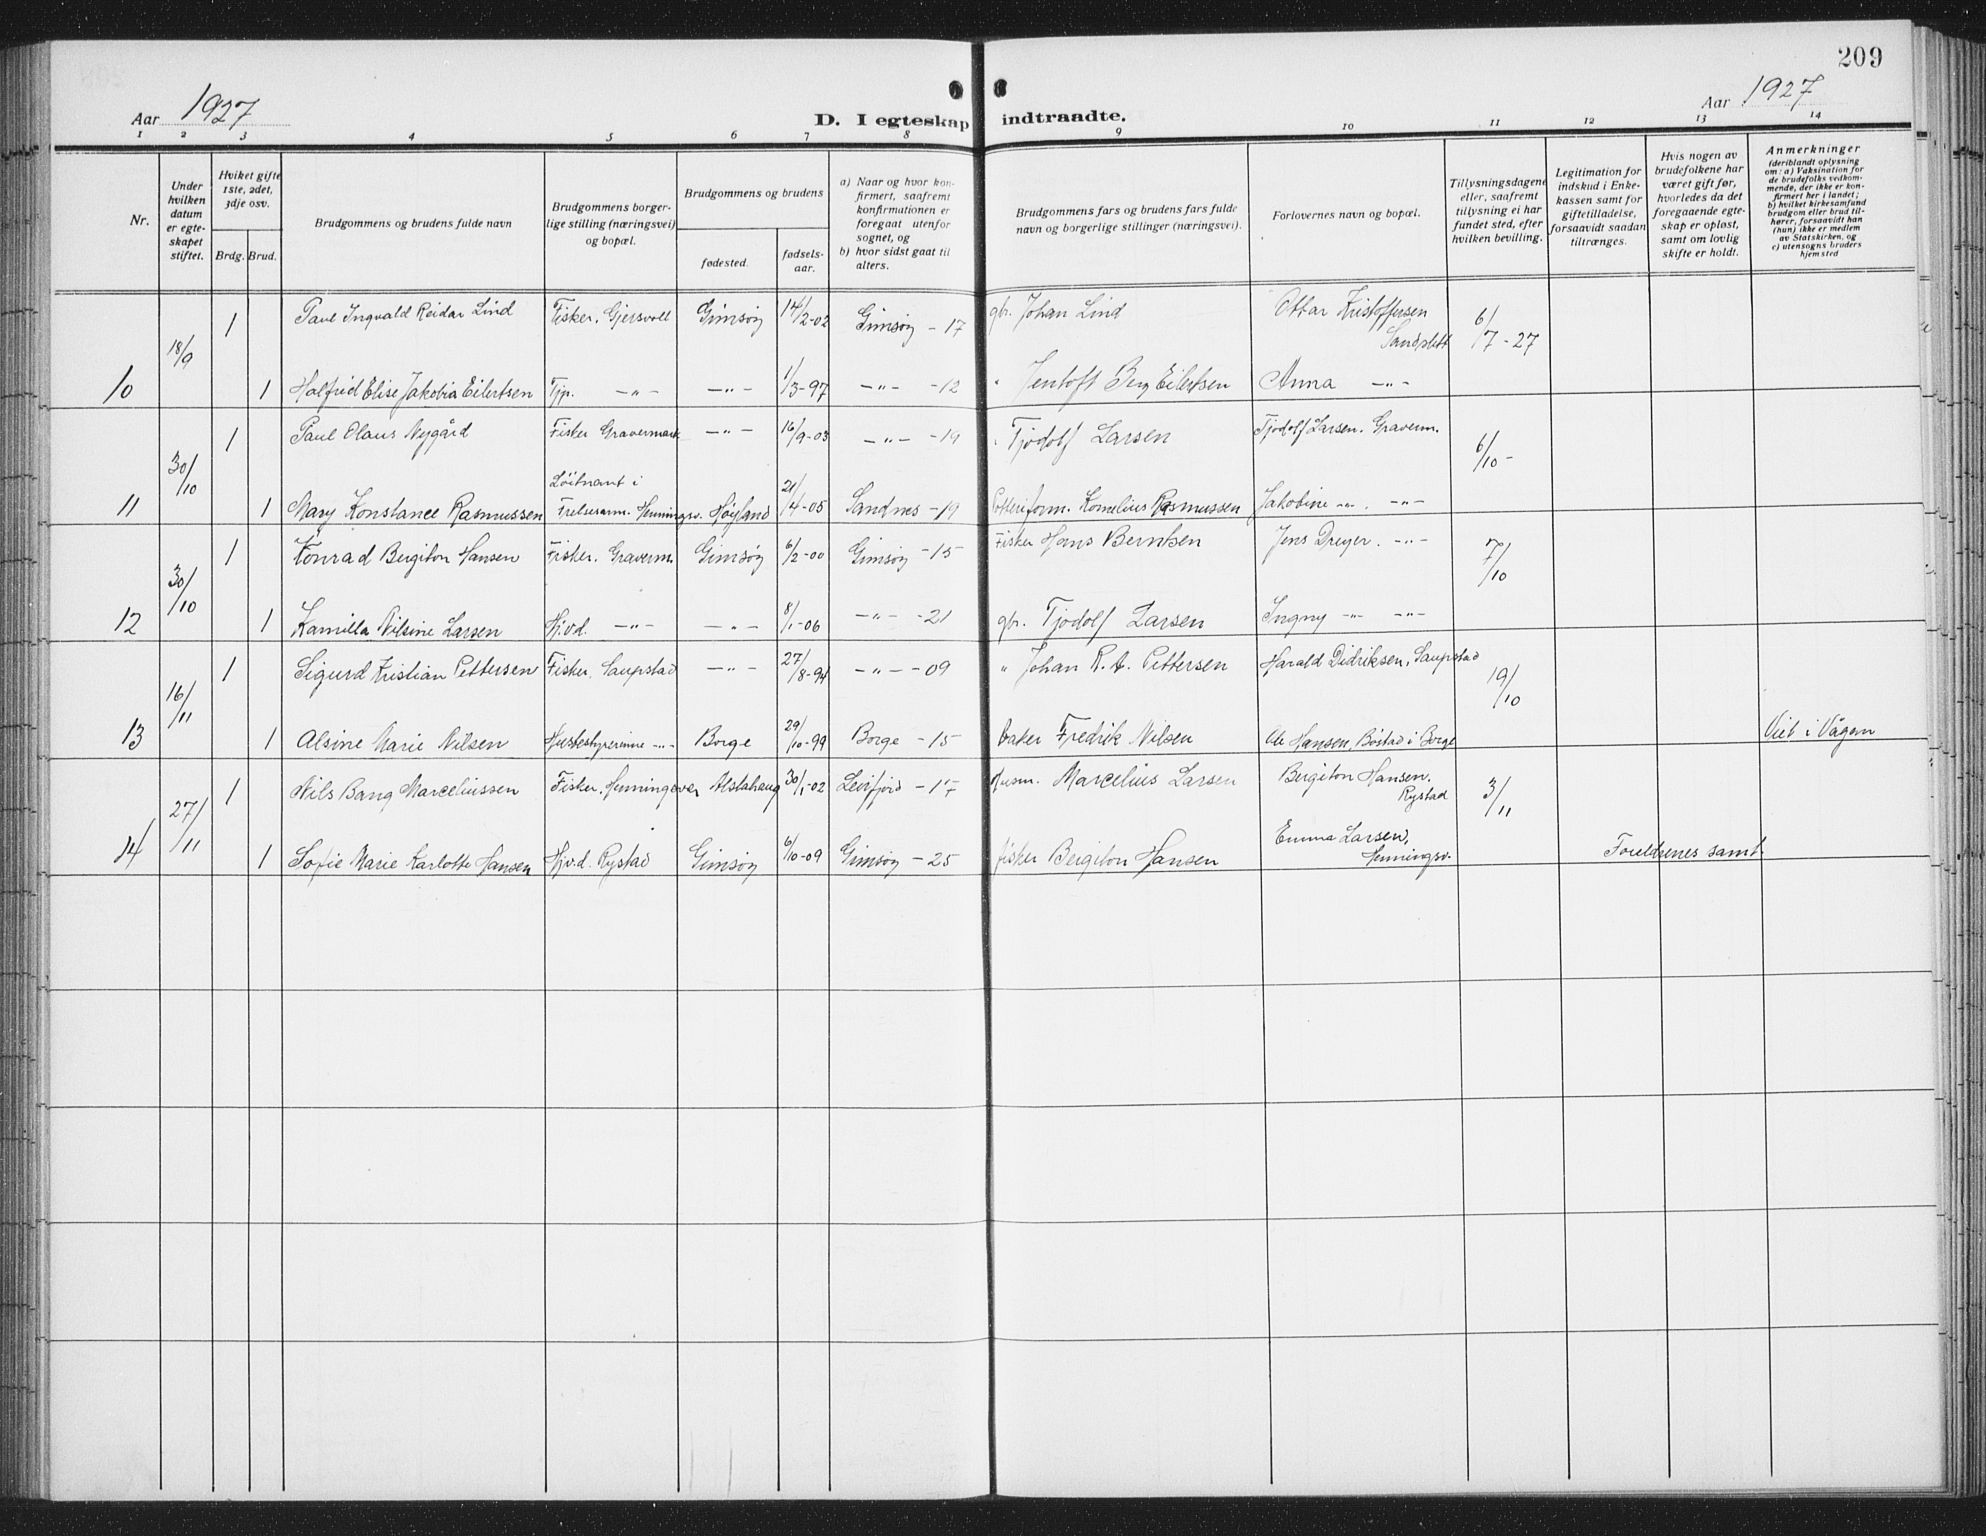 209
Aar 1927
D. I egteskap indtraadte.
Aar 1927
1 2 3 4 5 6 7 8 9 10 11 12 13 14
Nr.
Under hvilken datum er egteskapet stiftet.
Hvilket gifte 1ste, 2det, 3dje osv.
Brdg. Brud.
Brudgommens og brudens fulde navn
Brudgommens borgerlige stilling (næringsvei) og bopæl.
Brudgommens og brudens
fødested.
fødselsaar.
a) Naar og hvor konfirmert, saafremt konfirmationen er foregaat utenfor sognet, og
b) hvor sidst gaat til alters.
Brudgommens fars og brudens fars fulde navn og borgerlige stillinger (næringsvei).
Forlovernes navn og bopæl.
Tillysningsdagene eller, saafremt tillysning ei har fundet sted, efter hvilken bevilling.
Legitimation for indskud i Enkekassen samt for giftetilladelse, forsaavidt saadan tiltrænges.
Hvis nogen av brudefolkene har været gift før, hvorledes da det foregaaende egteskap er opløst, samt om lovlig skifte er holdt.
Anmerkninger
(deriblandt oplysning om: a) Vaksination for de brudefolks vedkommende, der ikke er konfirmert her i landet; b) hvilket kirkesamfund brudgom eller brud tilhører, forsaavidt han (hun) ikke er medlem av Statskirken, og c) utensogns bruders hjemsted
10 18/9 1 Paul Ingvald Reidar Lind Fisker, Gjersvoll Gimsøy 14/2-02 Gimsøy - 17 gbr. Johan Lind Ottar Kristoffersen Sandslett 6/7-27
1 Halfrid Elise Jakobia Eilertsen Tjp. -"- -"- 1/3-97 -"- -12 " Jentoft Berg Eilertsen Anna -"-
11 30/10 1 Paul Olaus Nygård Fisker Gravermark -"- 16/9-03 -"- -19 " Tjodolf Larsen Tjodolf Larsen, Graverm. 6/10-
1 Mary Konstance Rasmussen Løitnant i Frelsesarm. Henningsv. Høyland 21/4-05 Sandnes -19 Kornelius Rasmussen Jakobine -"- -"-
12 30/10 1 Konrad Bergiton Hansen Fisker, Graverm. Gimsøy 6/2-00 Gimsøy -15 Fisker Hans Berntsen Jens Dreyer. -"- 7/10
1 Kamilla Nilsine Larsen Hj.v.d. -"- -"- 8/1-06 -"- -21 gbr. Tjodolf Larsen Ingny -"- -"-
13 16/11 1 Sigurd Kristian Pettersen Fisker, Saupstad -"- 27/8-94 -"- -09 " Johan R. A. Pettersen Harald Didriksen, Saupstad 19/10
1 Alsine Marie Nilsen Husbestyrerinne -"- Borge 29/10-99 Borge -15 baker Fredrik Nilsen Ole Hansen, Bøstad i Borge Viet i Vågan
14 27/11 1 Nils Bang Marceliussen Fisker, Henningsvær Alstahaug 30/1-02 Leirfjord -17 Husm. Marcelius Larsen Bergiton Hansen, Rystad 3/11
1 Sofie Marie Karlotte Hansen Hj.v.d. Rystad Gimsøy 6/10-09 Gimsøy - 25 fisker Bergiton Hansen Emma Larsen, Henningsv. Foreldrenes samt.